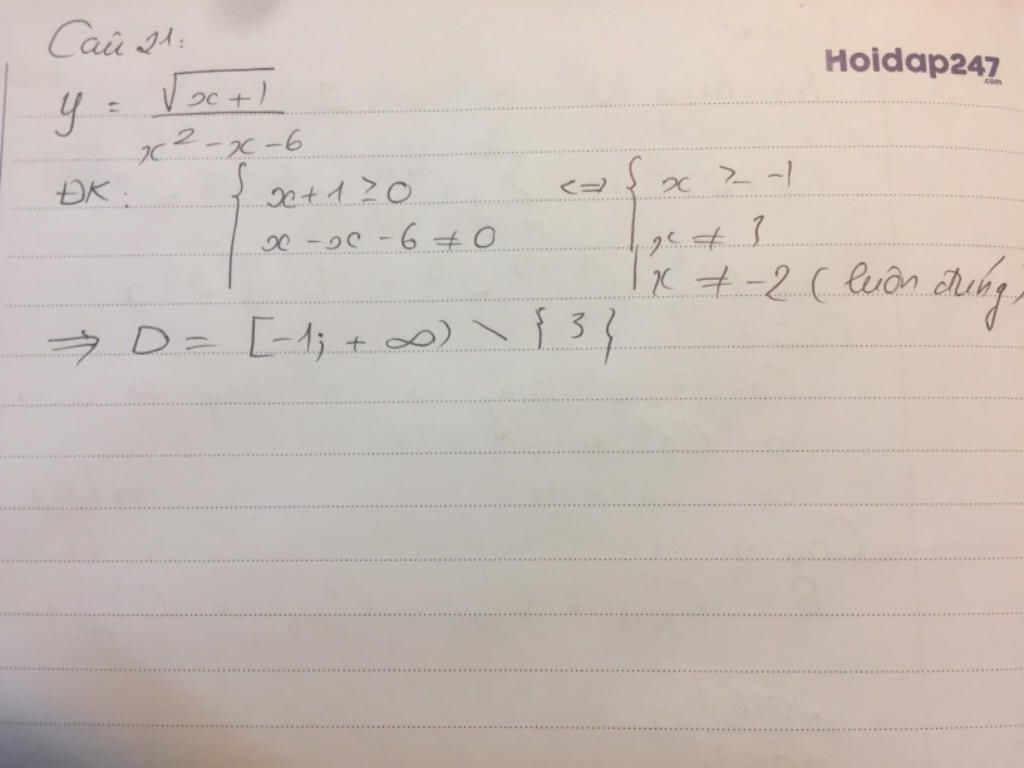 Câu 21:
Hoidap247
.com
y = \frac{\sqrt{x+1}}{x^2-x-6}
ĐK: { x+1 ≥ 0 <=> { x ≥ -1
x - x - 6 ≠ 0 x ≠ 3
x ≠ -2 (luôn đúng)
=> D = [-1; +∞) \ {3}